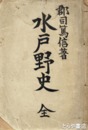 郡司篤信著
水戸野史 全